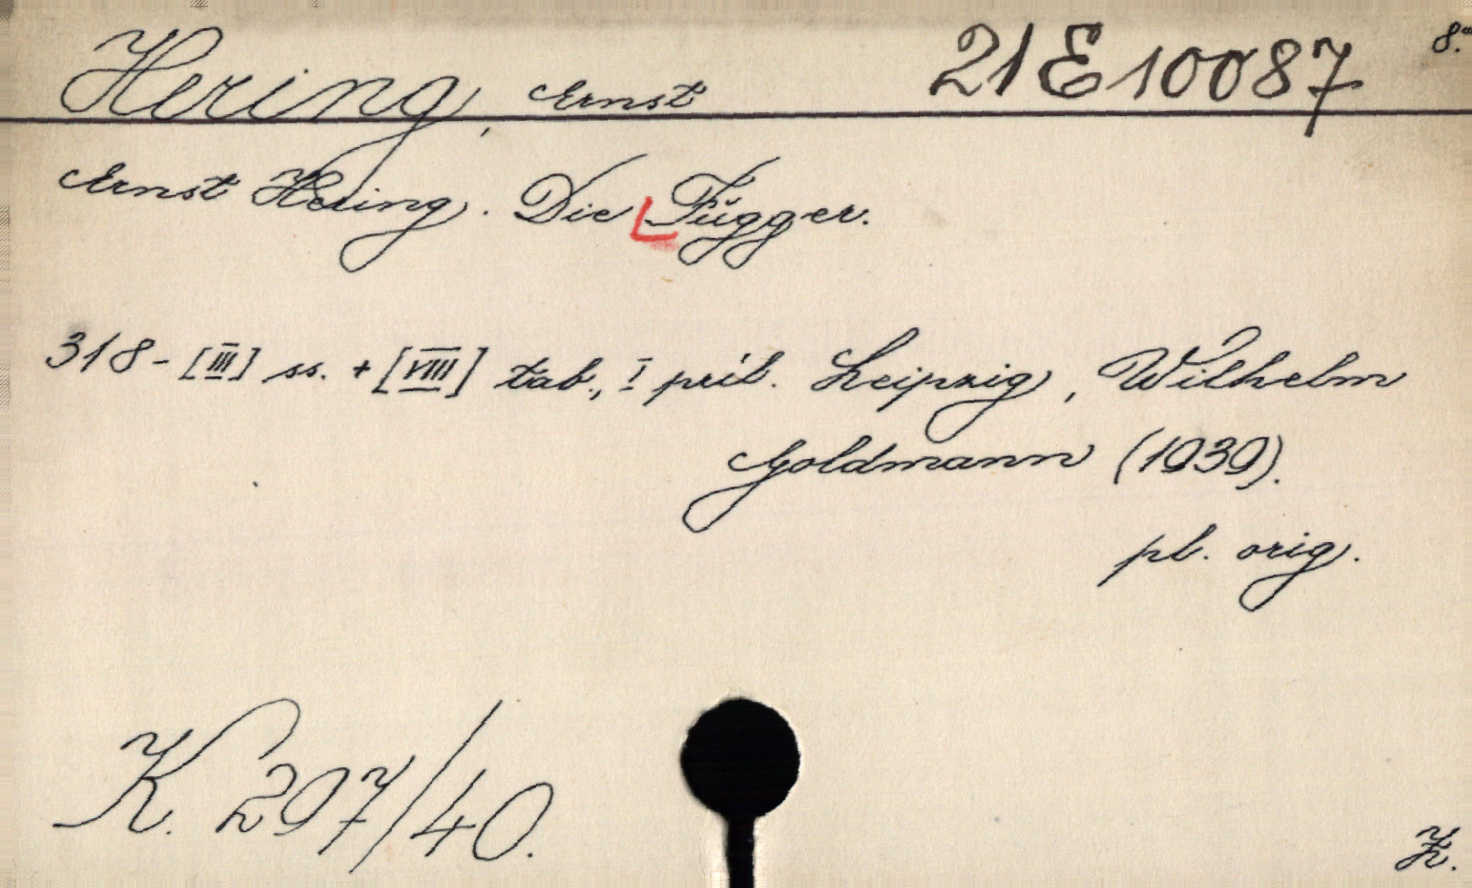 Hering, Ernst 21 E 10087 8.°
Ernst Hering. Die Fŭgger.
318-[III] ss. + [VIII] tab., I příl. Leipzig, Wilhelm
Goldmann (1939).
pl. orig.
K. 297/40.